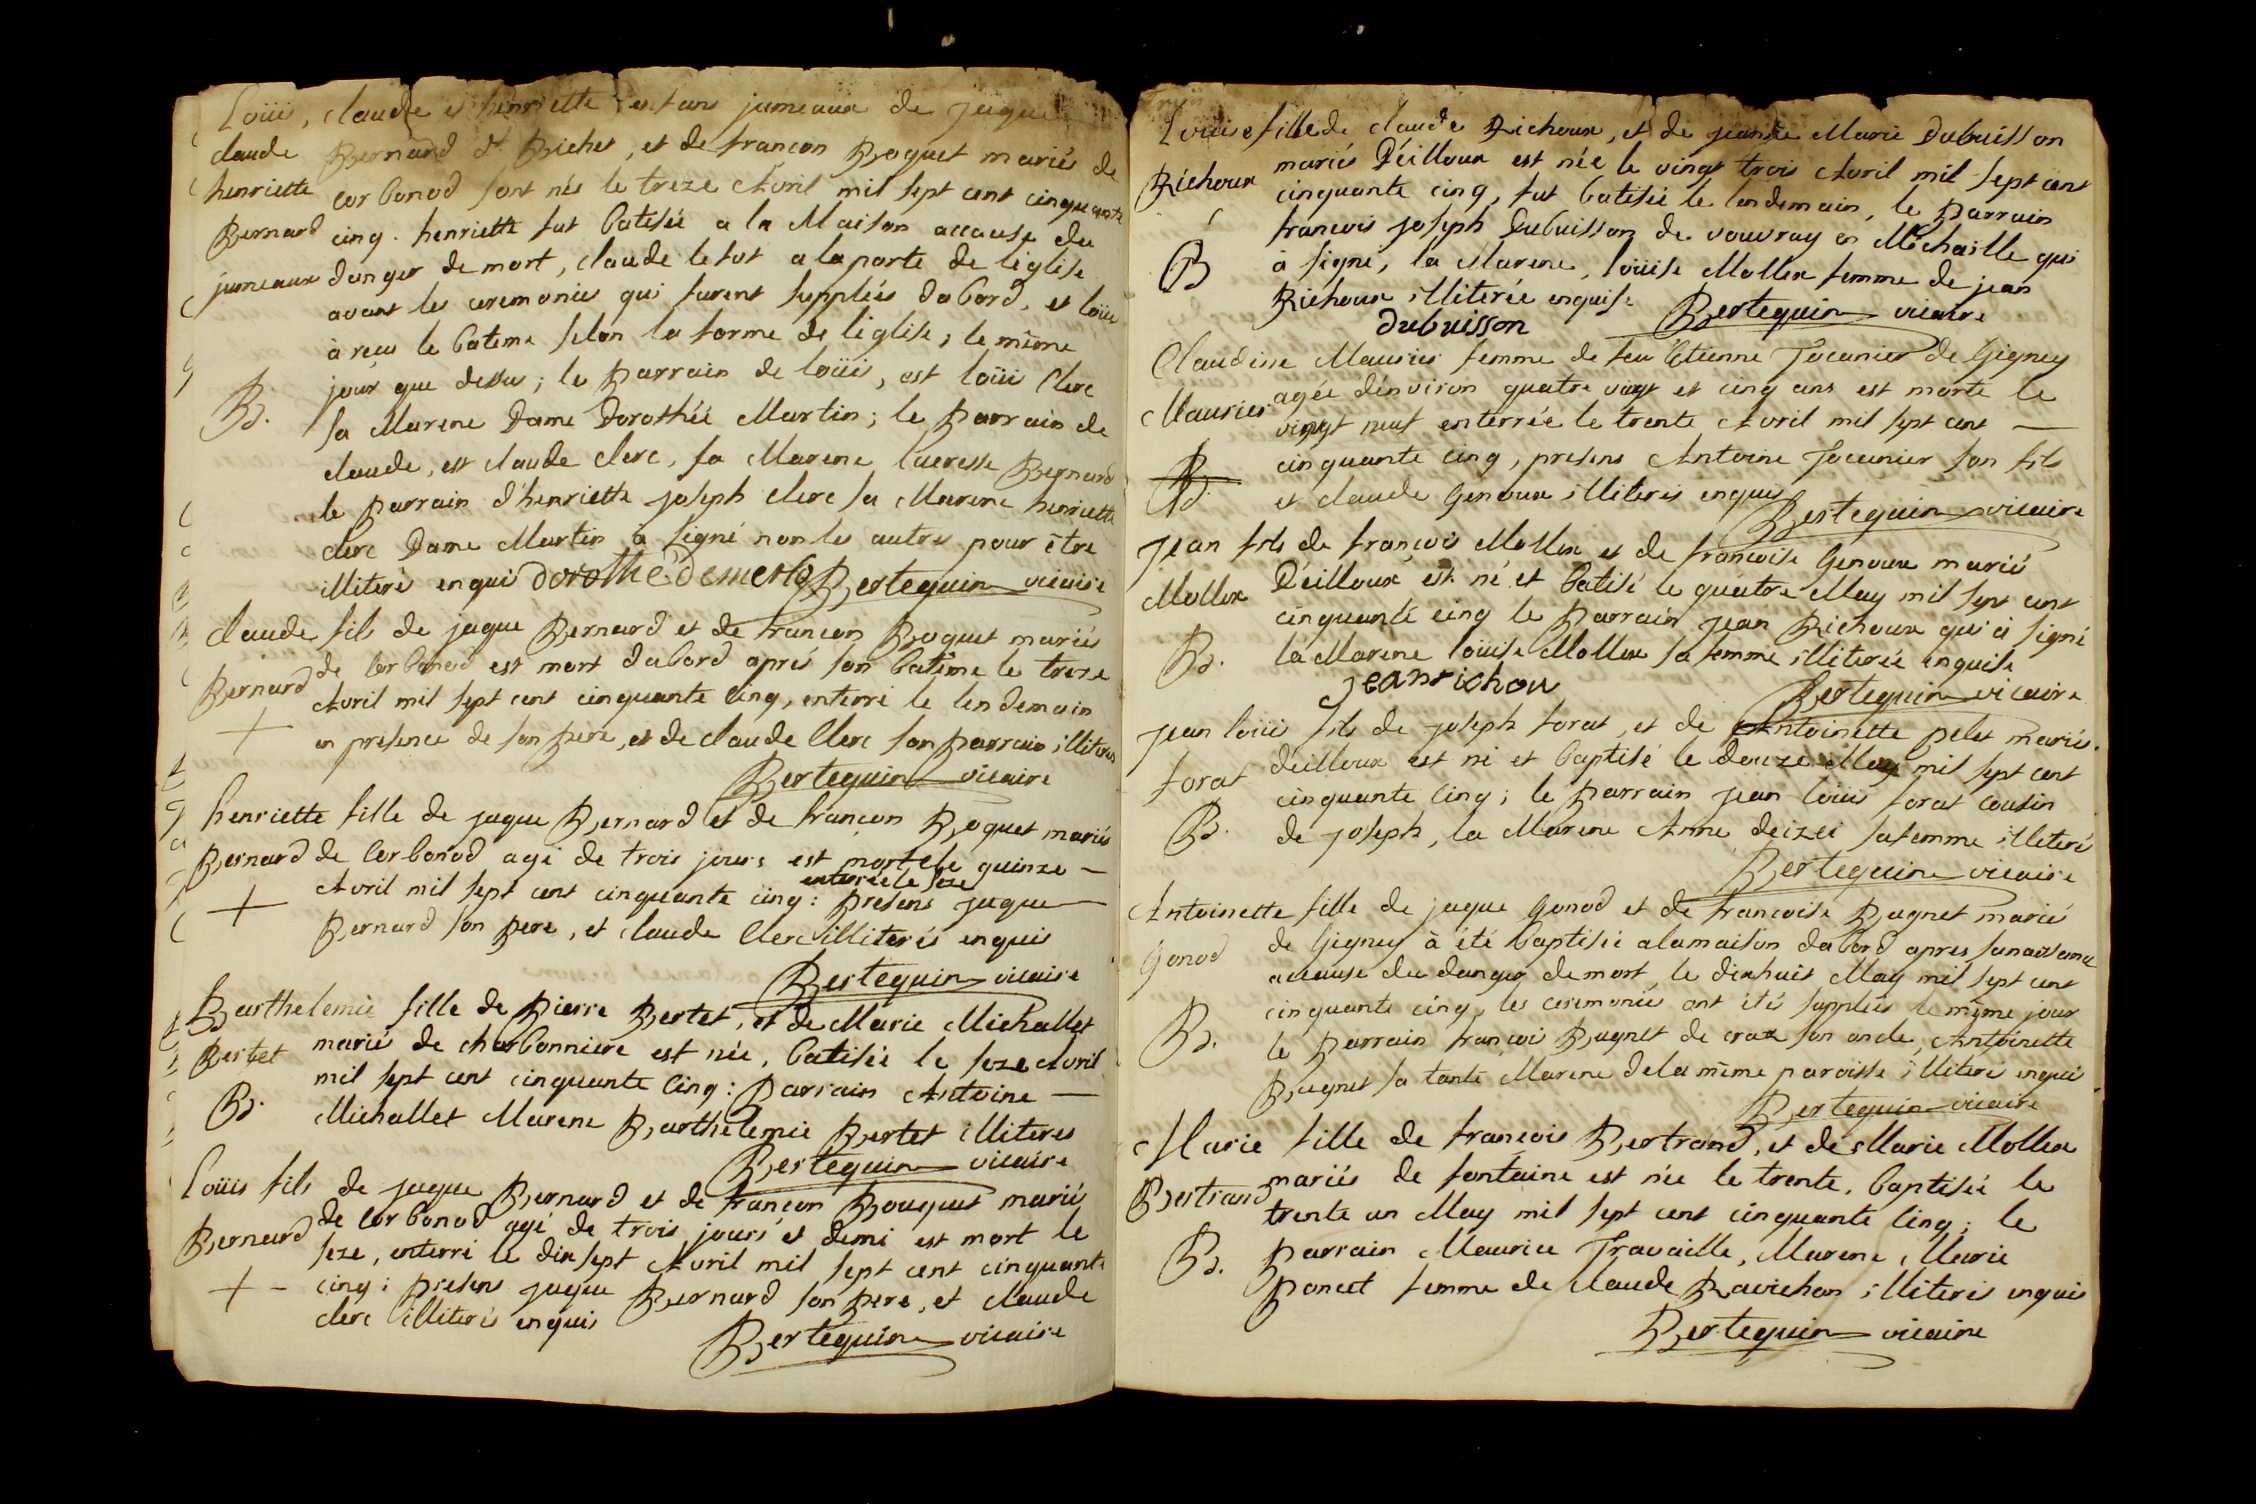 Loüis, claude et henriette enfans jumeaux de jaque
claude Bernard dt Bichet, et de francon Boquet mariés de
henriette corbonod sont nés le treze Avril mil sept cent cinquante
Bernard cinq. henriette fut batisée a la Maison accause du
jumeaux danger de mort, claude le fut a la porte de l'église
avant les ceremonies qui furent supplées dabord, et loüis
à reçu le batême selon la forme de l'église, le même
jour que dessus; le parrain de loüis, est loüis Clerc
B. sa Marene Dame Dorothée Martin; le parrain de
claude, est claude clerc, sa Marene lucresse Bernard
le parrain d'henriette joseph clerc sa Marene henriette
clerc Dame Martin à signé non les autres pour être
illiterés enquis dorothé demerlo Bertequin vicaire
claude fils de jaque Bernard et de francon Boquet mariés
Bernard de Corbonod est mort dabord aprés son batême le treze
+ Avril mil sept cent cinquante cinq, enterré le lendemain
en presence de son pere, et de claude Clerc son parrain illiteres
Bertequin vicaire
henriette fille de jaque Bernard et de françon Boquet mariés
Bernard de Corbonod agé de trois jours est morte le quinze -
enterrée le seze
+ Avril mil sept cent cinquante cinq: presens jaque
Bernard son pere, et claude Clerc illiterés enquis
Bertequin vicaire
Barthelemie fille de Pierre Bertet, et de Marie Michallet
Bertet mariés de charbonniere est née, batisée le seze Avril
mil sept cent cinquante cinq: Parrain Antoine -
B. Michallet Marene Barthelemie Bertet illiteres
Bertequin vicaire
Loüis fils de jaque Bernard et de françon Bouquet mariés
Bernard de Corbonod agé de trois jours et demi est mort le
seze, enterré le dixsept Avril mil sept cent cinquante
+ - cinq: presens jaque Bernard son pere, et claude
clerc illiterés enquis
Bertequin vicaire
Louise fille de claude Richoux, et de jeanne Marie Dubuisson
mariés D'éilloux est née le vingt trois Avril mil sept cent
Richoux cinquante cinq, fut batisée le lendemain, le parrain
francois joseph Dubuisson de vouvray en Michaille qui
B à signé, la Marene, loüise Mollex femme de jean
Richoux illiterée enquise Bertequin vicaire
dubuisson
Claudine Maurier femme de feu Etienne Jocunier de Gigney
Maurier agée denviron quatre vingt et cinq ans est morte le
vingt neuf enterrée le trente Avril mil sept cent -
B. cinquante cinq, presens Antoine Jocunier son fils
et claude Genoux illiterés enquis
Bertequin vicaire
Jean fils de françois Mollex et de françoise Genoux mariés
Mollex D'éilloux est né et batisé le quatre May mil sept cent
cinquante cinq le parrain jean Richoux qui à signé
B. la Marene loüise Mollex sa femme illiterée enquise
Jean richou
Bertequin vicaire
Jean loüis fils de joseph forat, et de Antoinette pelet mariés
forat deilloux est né et baptisé le douze May mil sept cent
cinquante cinq; le parrain jean loüis forat cousin
B. de joseph, la Marene Anne deizei sa femme illiteré
Bertequin vicaire
Antoinette fille de jaque Gonod et de françoise Bugnet mariés
Gonod de Gigney à été baptisée a la maison dabord apres sa naissance
accause du danger de mort, le dixhuit May mil sept cent
cinquante cinq, les ceremonies ont étés supplées le même jour
B. le parrain françoi Bugnet de craz son oncle, Antoinette
Bugnet sa tante Marene de la même paroisse illiteré enquis
Bertequin vicaire
Marie fille de francois Bertrand, et de Marie Mollex
Bertrand mariés de fontaine est née le trente, baptisée le
trente un May mil sept cent cinquante cinq; le
B. parrain Maurice Travaille, Marene, Marie
poncet femme de Claude Ravichon illiterés enquis
Bertequin vicaire